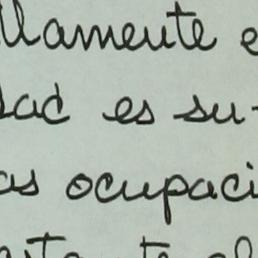 llamente e
sad es su-
as ocupaci